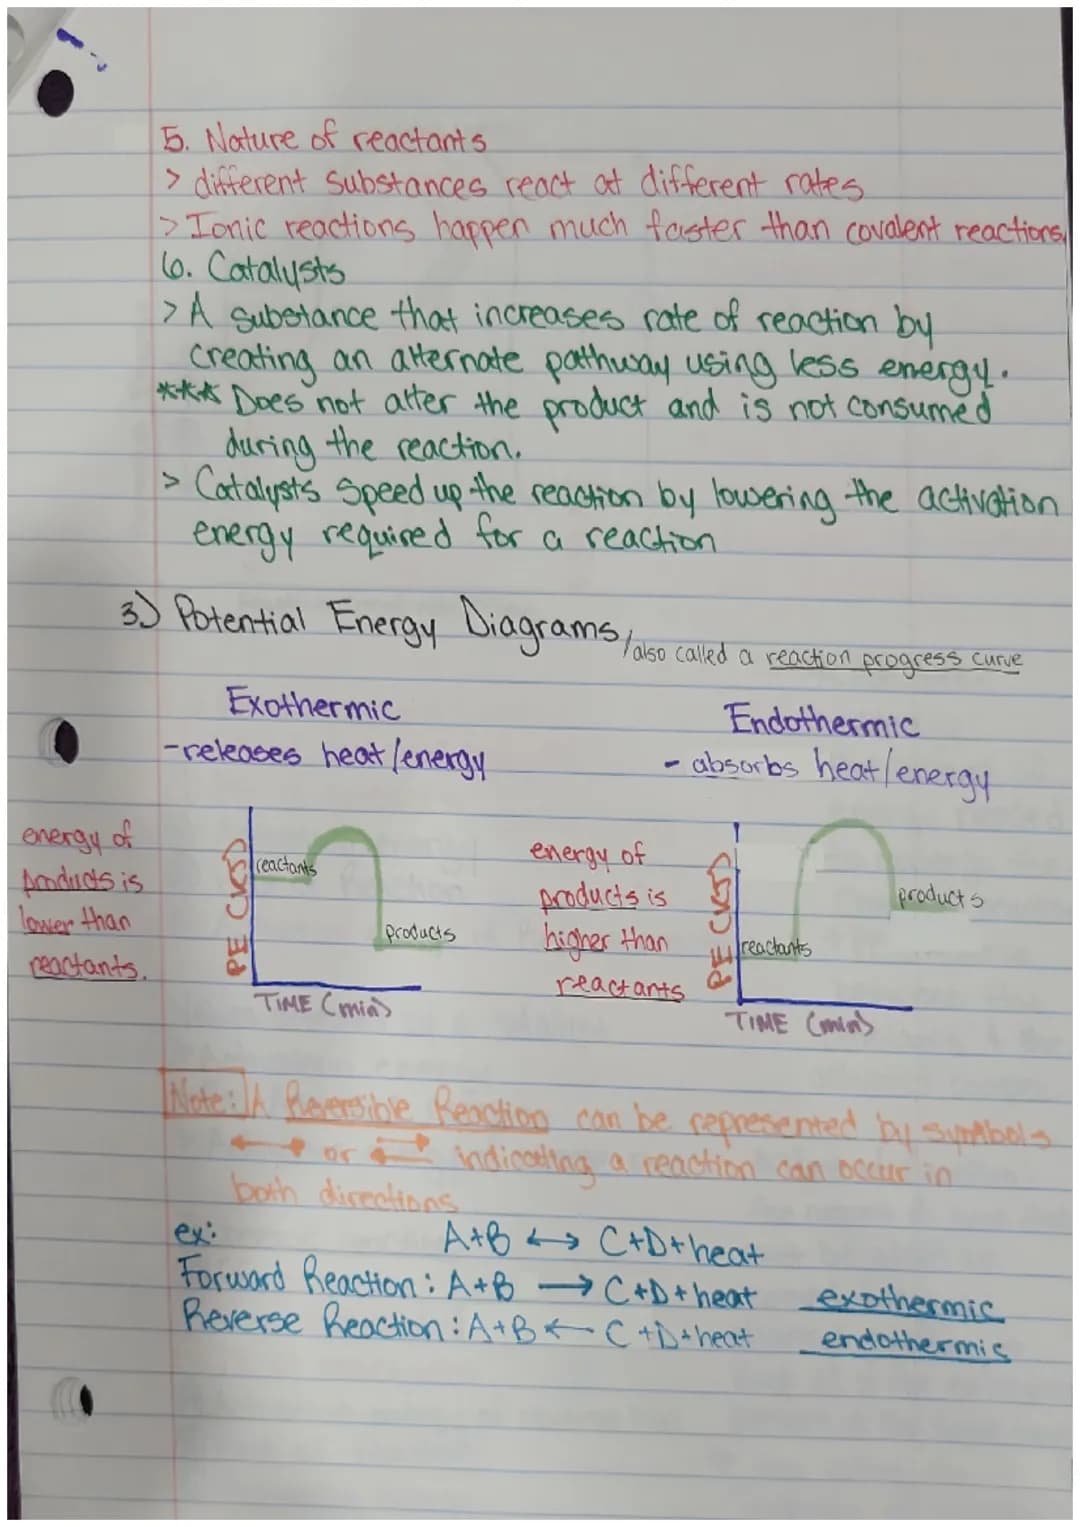 5. Nature of reactants
> different substances react at different rates
> Ionic reactions happen much faster than covalent reactions
6. Catalysts
> A substance that increases rate of reaction by
creating an alternate pathway using less energy.
*** Does not alter the product and is not consumed
during the reaction.
> Catalysts speed up the reaction by lowering the activation
energy required for a reaction
3.) Potential Energy Diagrams, also called a reaction progress curve
Exothermic
-releases heat/energy
energy of
products is
lower than
reactants.
PE (KJ)
reactants
products
TIME (min)
Endothermic
- absorbs heat/energy
energy of
products is
higher than
reactants
PE (KJ)
reactants
products
TIME (min)
Note: A Reversible Reaction can be represented by symbols
↔ or ⇄ indicating a reaction can occur in
both directions
ex: A+B ↔ C+D+heat
Forward Reaction: A+B → C+D+heat exothermic
Reverse Reaction: A+B ← C+D+heat endothermic